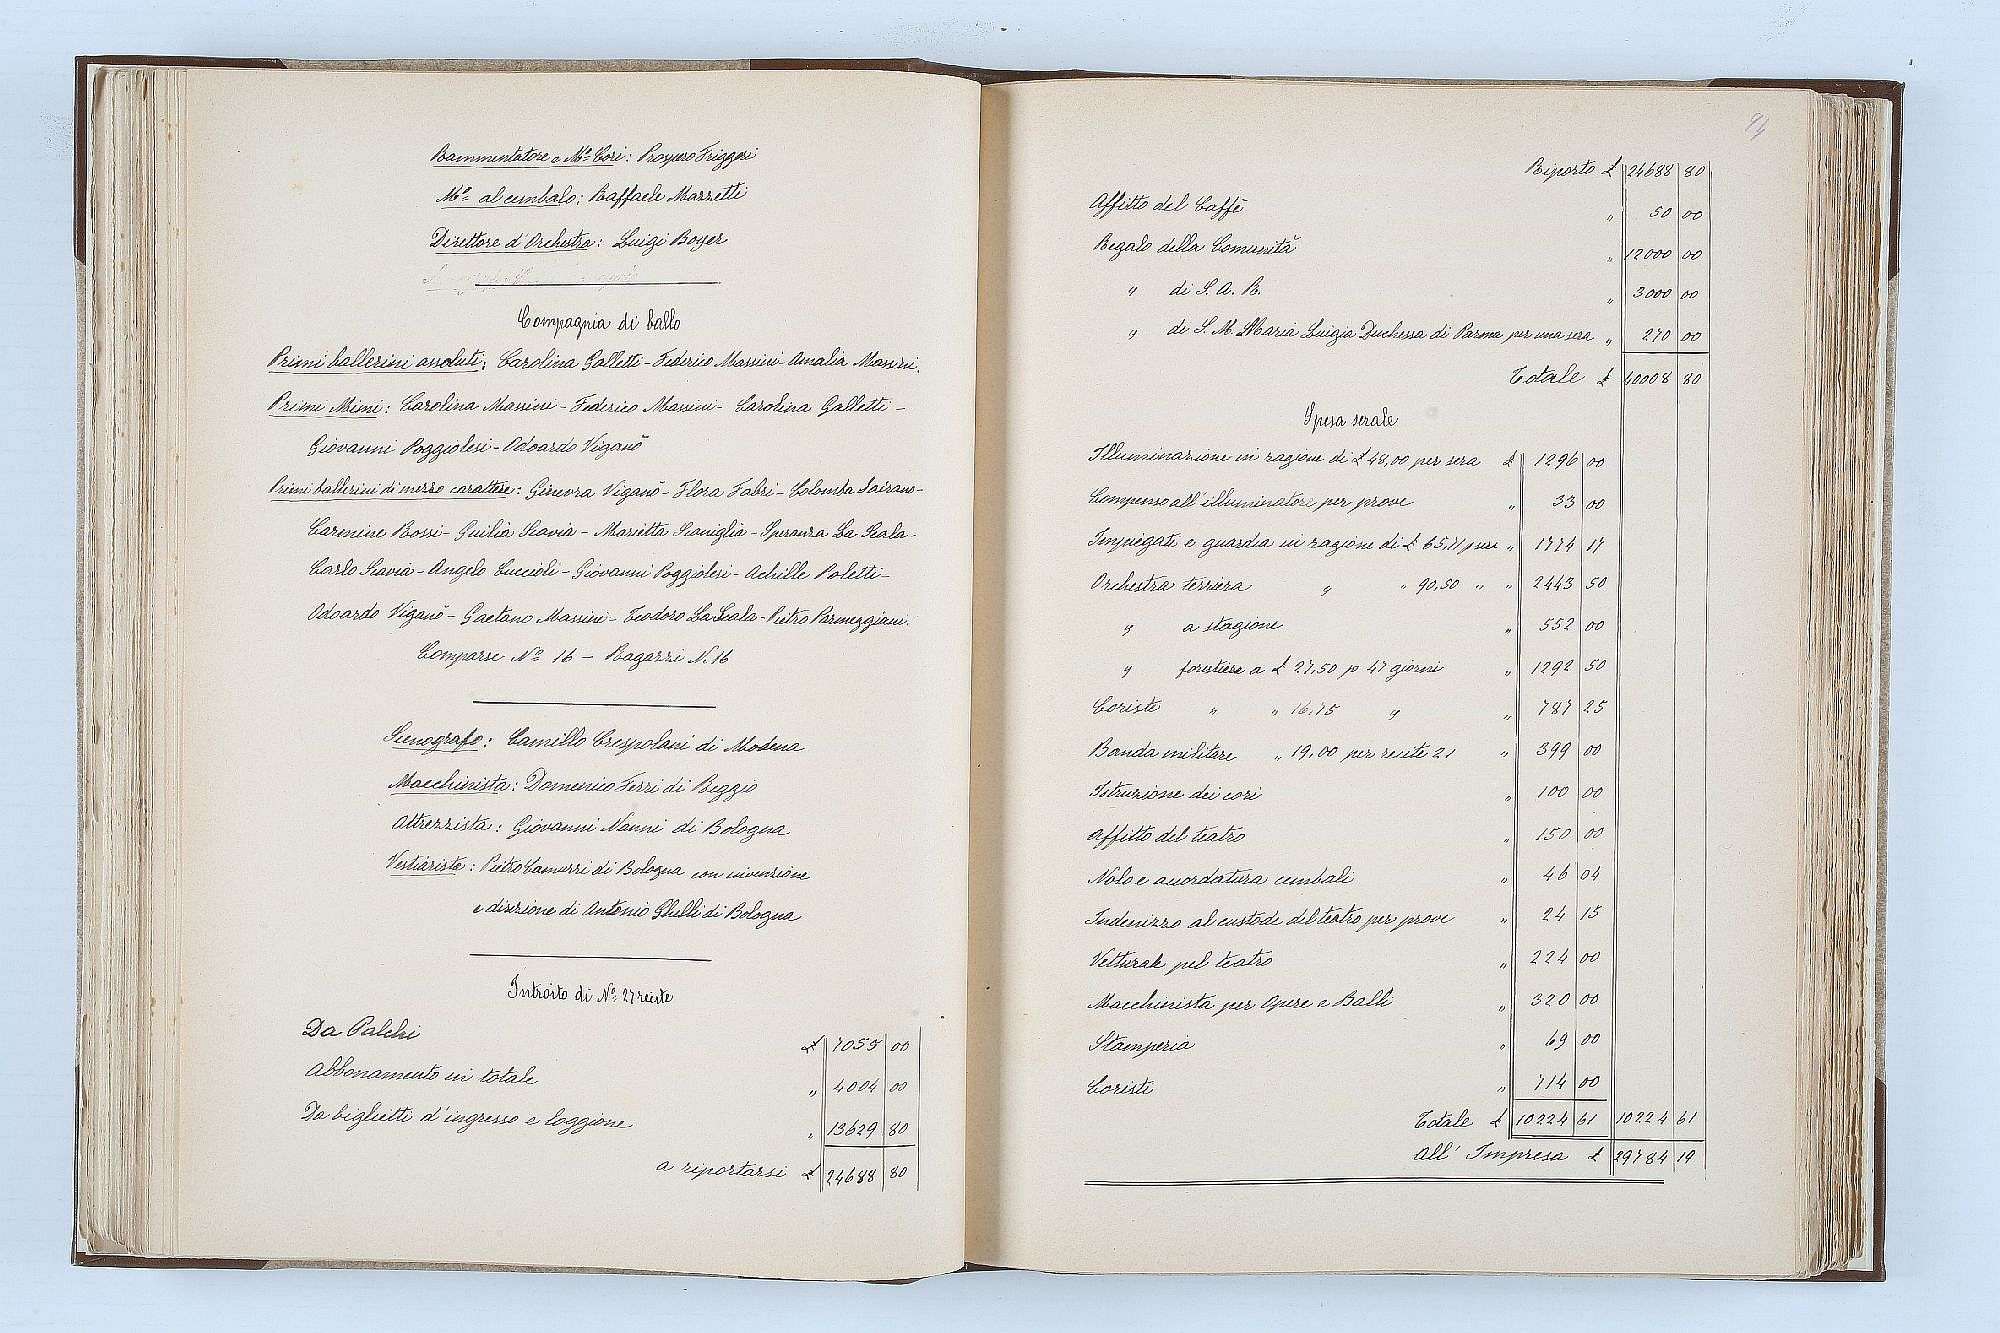 Rammentatore e Mo. Cori: Prospero Friggeri
Mo. al cembalo: Raffaele Mazzetti
Direttore d'Orchestra: Luigi Boyer
Compagnia di ballo
Primi ballerini assoluti: Carolina Galletti - Federico Massini - Amalia Massini.
Primi Mimi: Carolina Massini - Federico Massini - Carolina Galletti -
Giovanni Poggiolesi - Odoardo Viganò
Primi ballerini di mezzo carattere: Ginevra Viganò - Flora Fabri - Colomba Sairano -
Carmine Rossi - Giulia Scavia - Marietta Scaniglia - Speranza La Scala -
Carlo Scavia - Angelo Cuccioli - Giovanni Poggiolesi - Achille Poletti -
Odoardo Viganò - Gaetano Massini - Teodoro La Scala - Pietro Parmeggiani.
Comparse No. 16 - Ragazzi N. 16
Scenografo: Camillo Crespolani di Modena
Macchinista: Domenico Ferri di Reggio
Attrezzista: Giovanni Nanni di Bologna
Vestiarista: Pietro Camurri di Bologna con invenzione
e direzione di Antonio Ghelli di Bologna
Introito di No. 27 recite
Da Palchi £ 7055 00
Abbonamento in totale " 4004 00
Da biglietti d'ingresso e loggione " 13629 80
a riportarsi £ 24688 80
94
Riporto £ 24688 80
Affitto del Caffè " 50 00
Regalo della Comunità " 12000 00
" di S. A. R. " 3000 00
" di S. M. Maria Luigia Duchessa di Parma per una sera " 270 00
Totale £ 40008 80
Spesa serale
Illuminazione in ragione di £ 48,00 per sera £ 1296 00
Compenso all'illuminatore per prove " 33 00
Impiegati e guardia in ragione di £ 65,71 per " 1774 17
Orchestra terriera " " 90,50 " " 2443 50
" a stagione " 552 00
" forestiere a £ 27,50 p 47 giorni " 1292 50
Coriste " " 16,75 " " 787 25
Banda militare " 19,00 per recite 21 " 399 00
Istruzione dei cori " 100 00
Affitto del teatro " 150 00
Nolo e accordatura cembali " 46 04
Indenizzo al custode del teatro per prove " 24 15
Vetturale pel teatro " 224 00
Macchinista per Opere e Balli " 320 00
Stamperia " 69 00
Coristi " 714 00
Totale £ 10224 61 10224 61
all' Impresa £ 29784 19